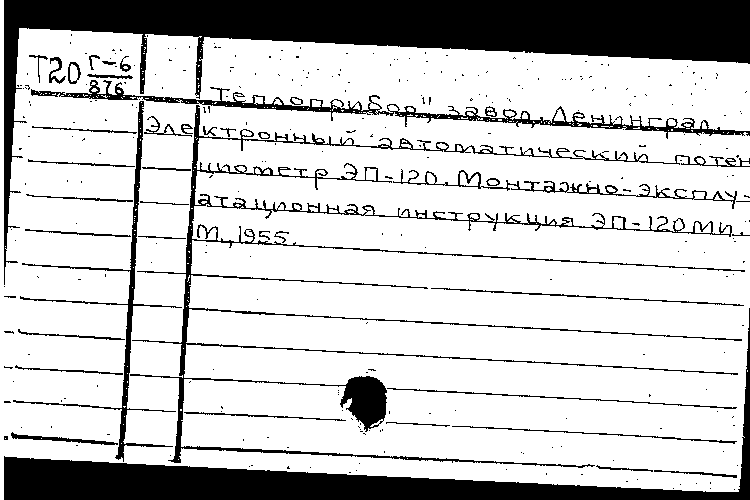 Т20 Г-6
876
"Теплоприбор", завод, Ленинград.
Электронный автоматический потен
циометр ЭП-120. Монтажно-эксплу-
атационная инструкция ЭП-120 МИ.
М., 1955.